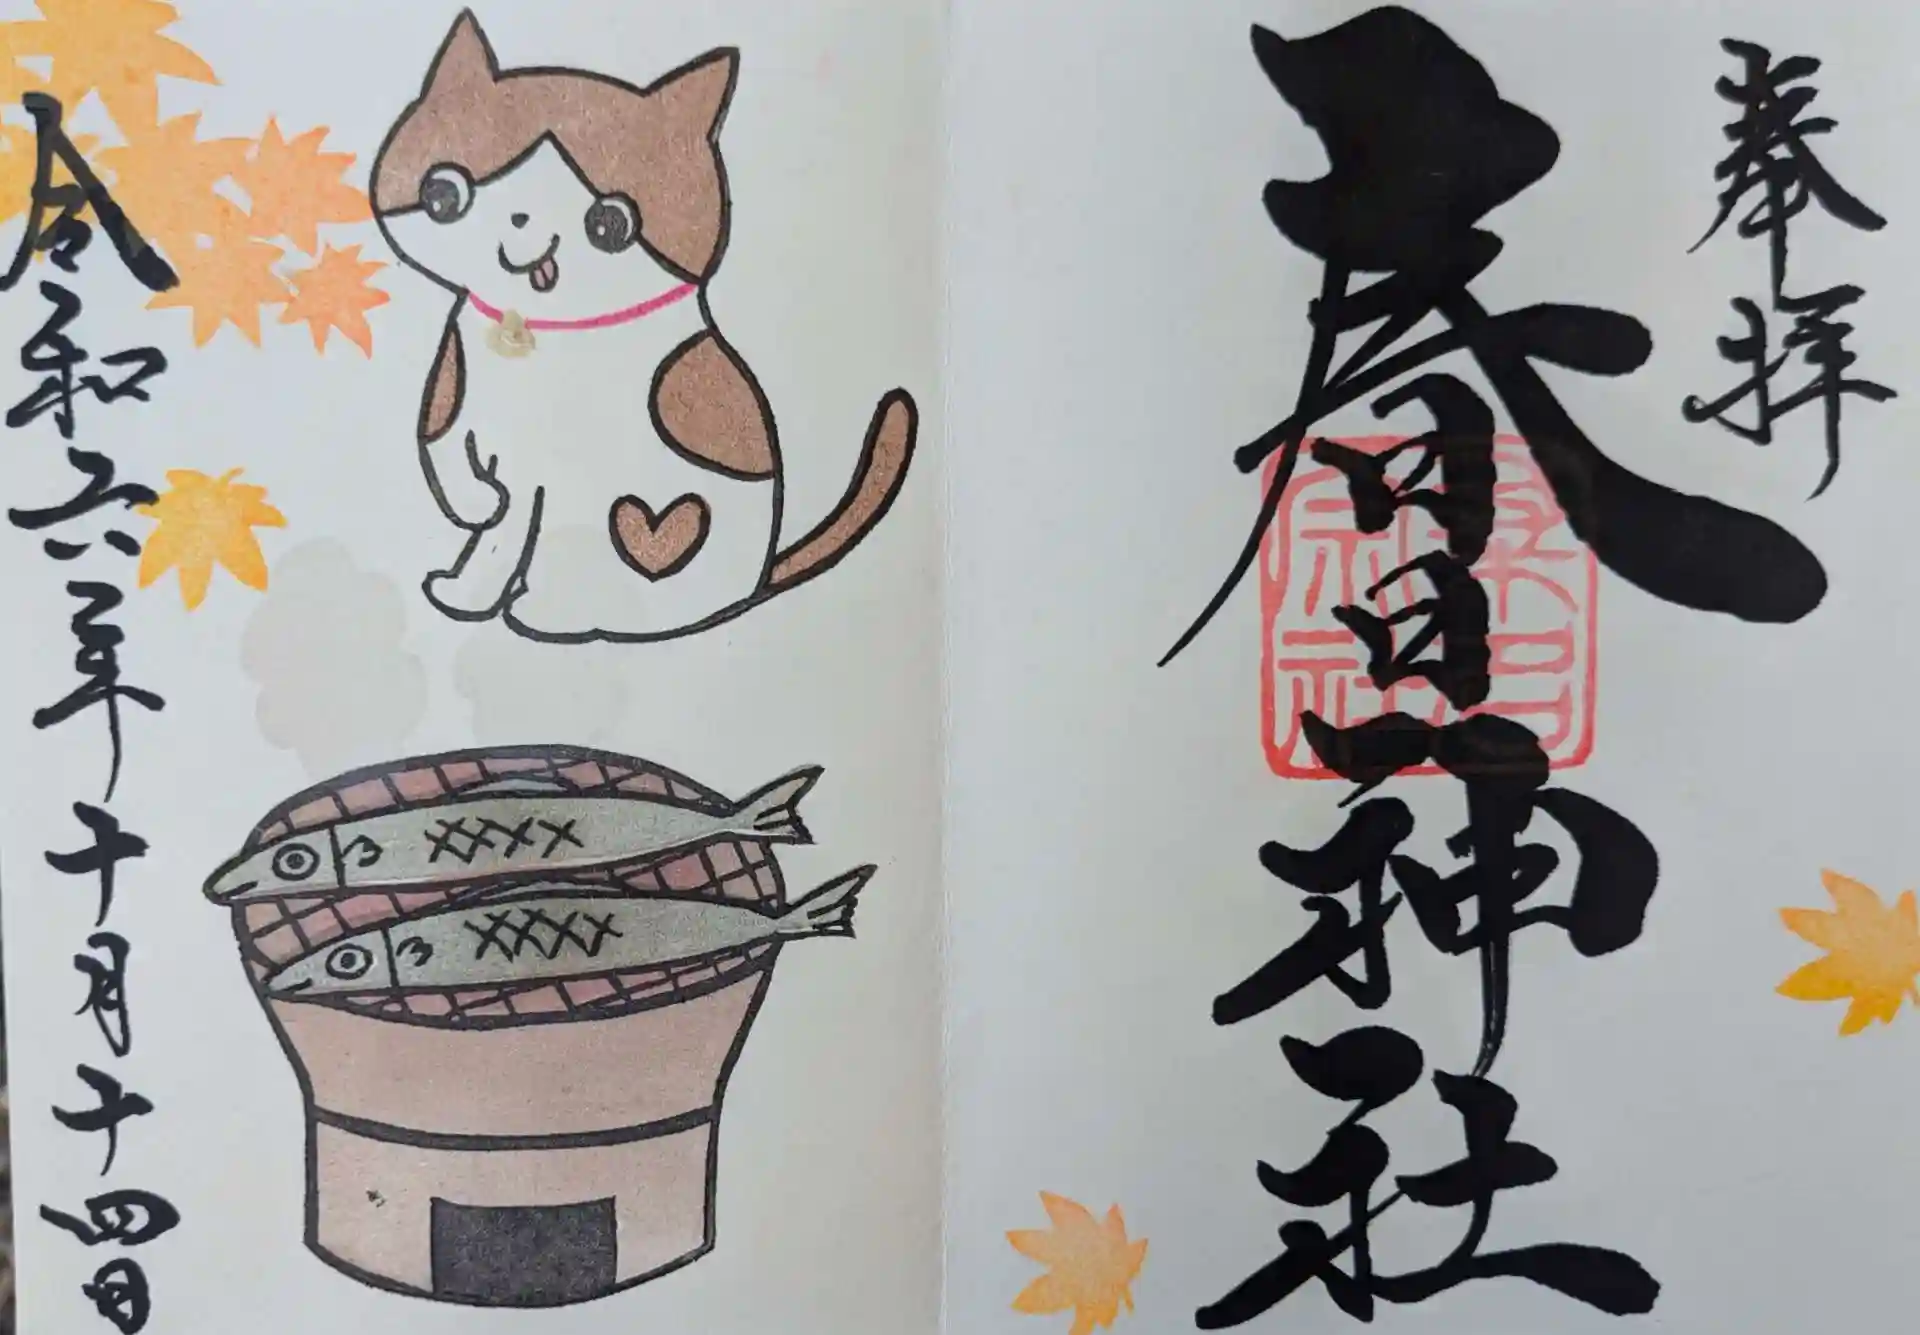 奉拝
春日神社
春日
神社
令和六年十月十四日